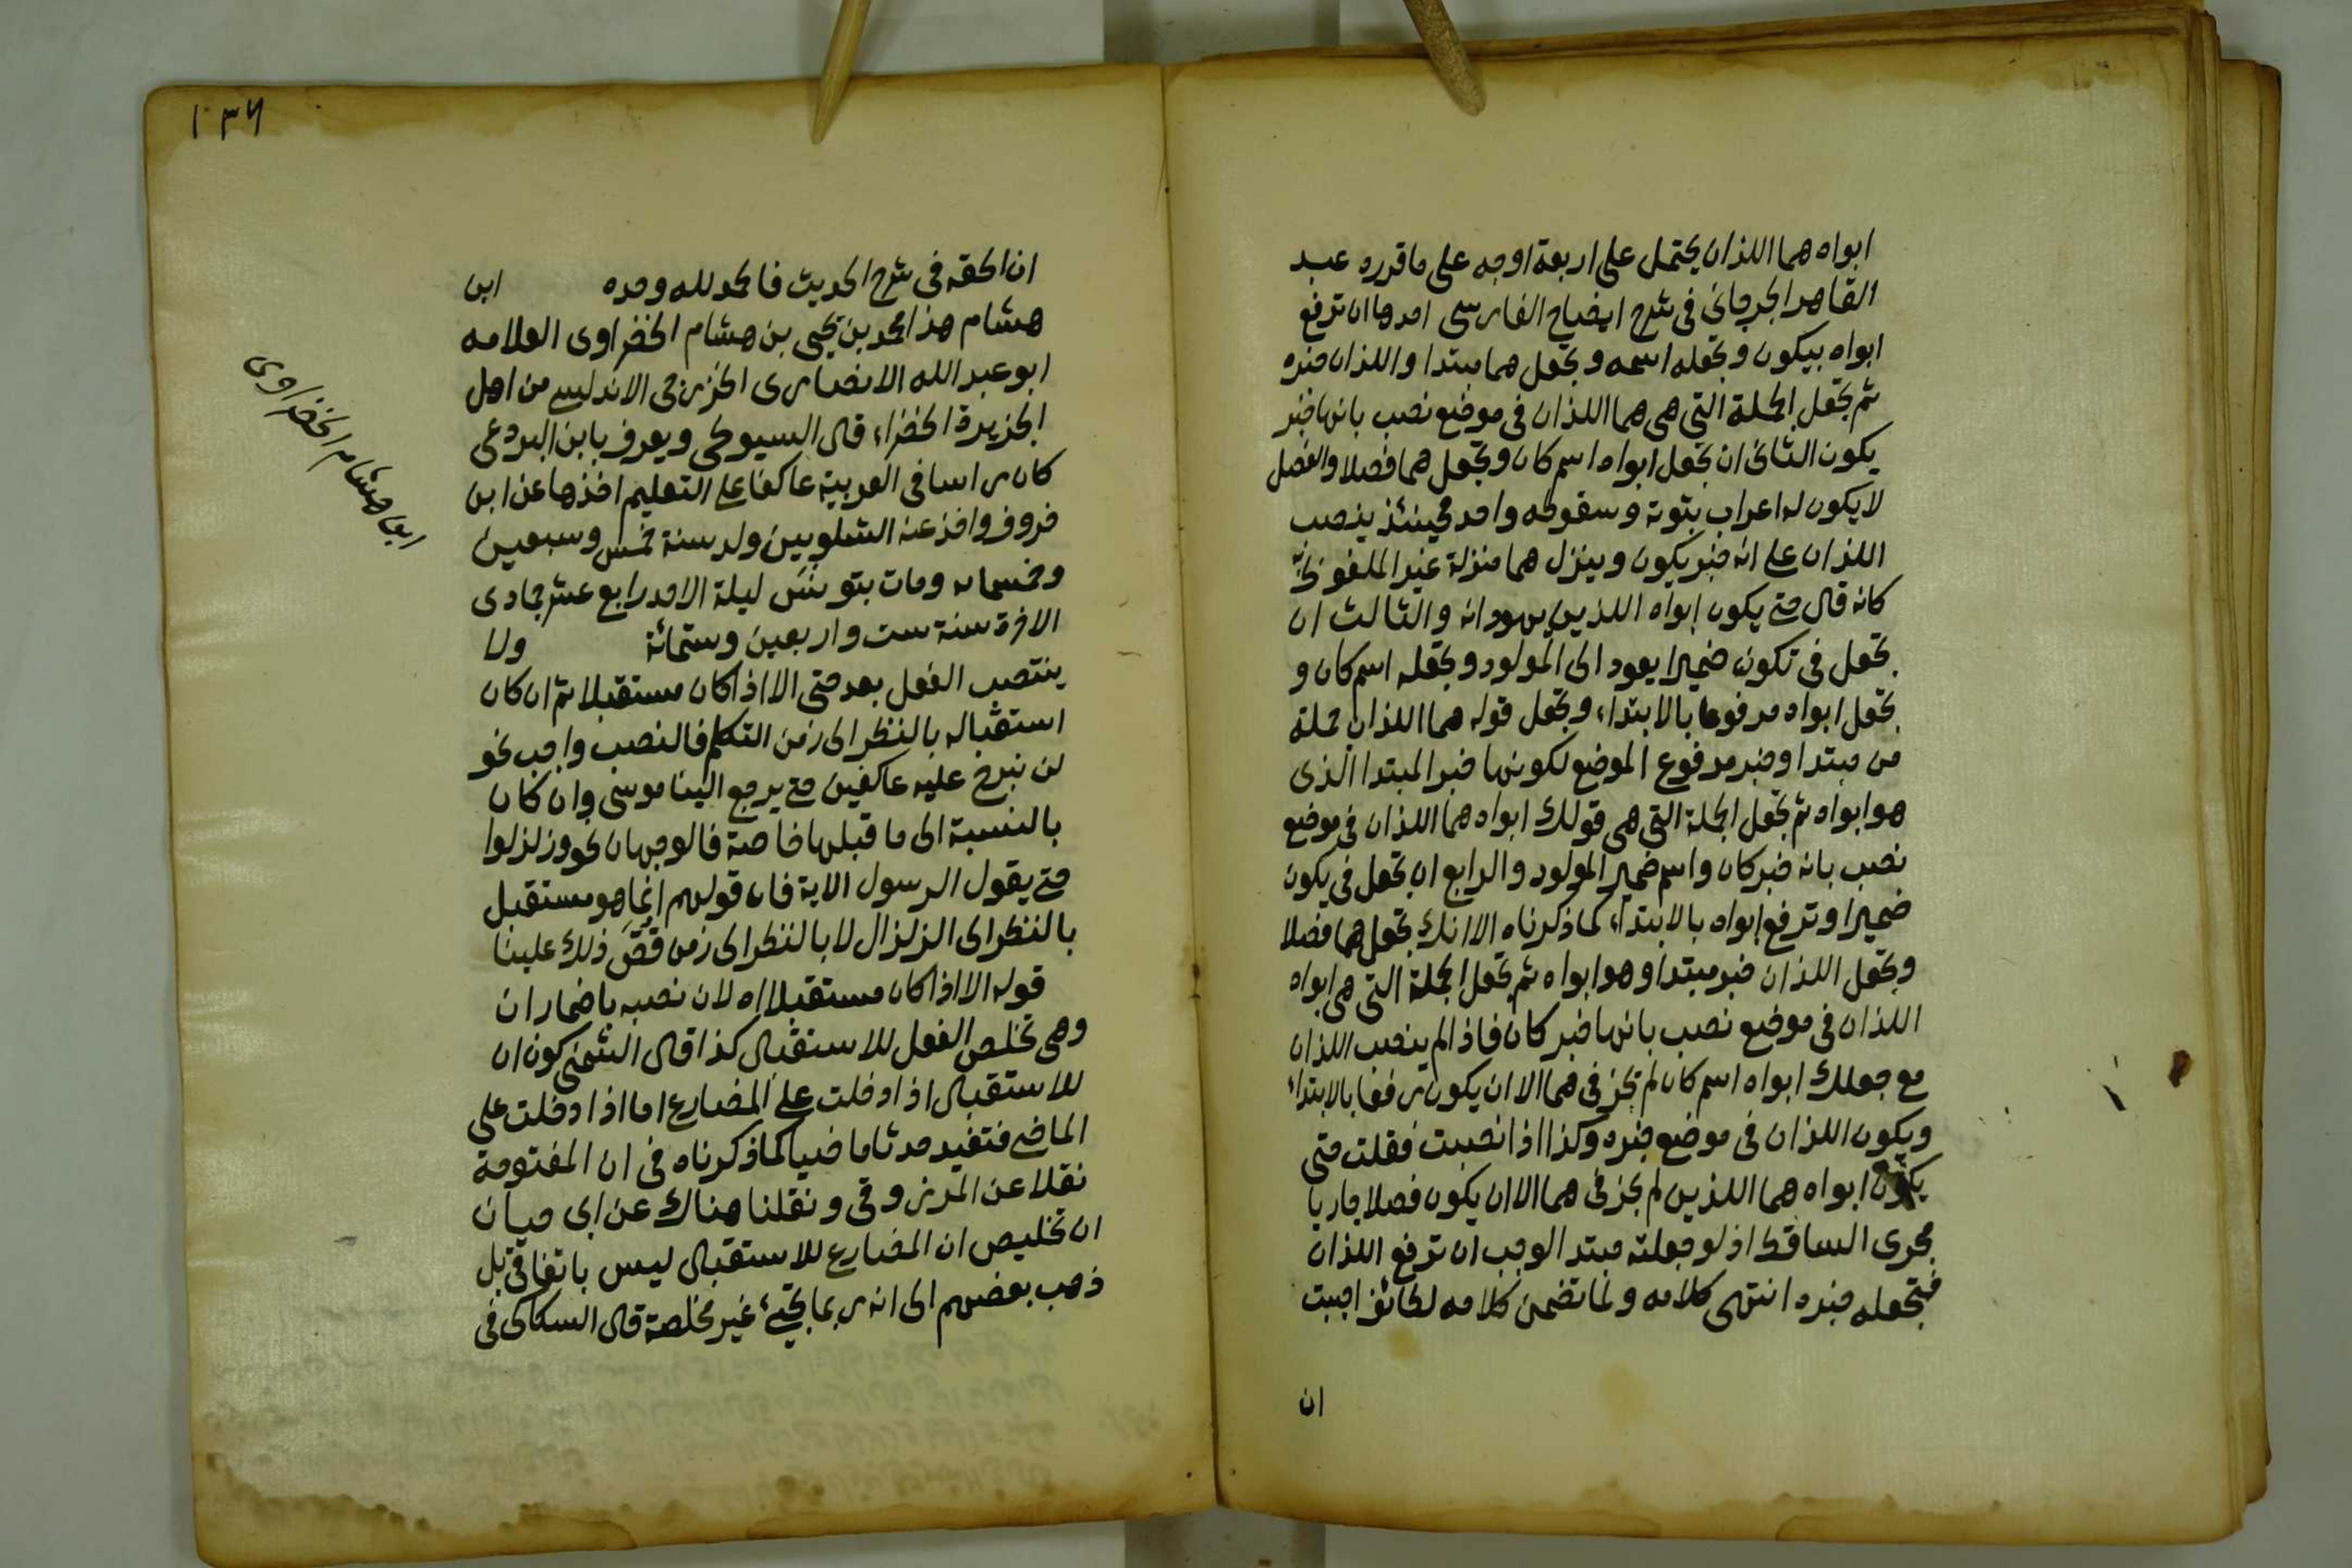 ابواه هما اللذان يحتمل على اربعة اوجه على ما قرره عبد
القاهر الجرجانى فى شرح ايضاح الفارسى احدها ان ترفع
ابواه بيكون وتجعله اسمه وتجعل هما مبتدا واللذان خبره
ثم تجعل الجملة التى هى هما اللذان فى موضع نصب بانها خبر
يكون الثانى ان تجعل ابواه اسم كان وتجعل هما فصلا والفصل
لا يكون له اعراب بثوته وسقوطه واحد فحينئذ ينصب
اللذان على انه خبر يكون وينزل هما منزلة غير الملفوظ
كانه قال حتى يكون ابواه اللذين يهودانه والثالث ان
تجعل فى تكون ضميرا يعود الى المولود وتجعله اسم كان و
تجعل ابواه مرفوعا بالابتداء وتجعل قوله هما اللذان جملة
من مبتدا وخبر مرفوع الموضع لكونها خبر المبتدا الذى
هو ابواه ثم تجعل الجملة التى هى قولك ابواه هما اللذان فى موضع
نصب بانه خبر كان واسم ضمير المولود والرابع ان تجعل فى يكون
ضميرا وترفع ابواه بالابتداء كما ذكرناه الا انك تجعل هما فصلا
وتجعل اللذان خبر مبتدا وهو ابواه ثم تجعل الجملة التى هى ابواه
اللذان فى موضع نصب بانها خبر كان فاذا لم ينصب اللذان
مع جعلك ابواه اسم كان لم يجز فى هما الا ان يكون رفعا بالابتداء
ويكون اللذان فى موضع خبره وكذا اذا نصبت فقلت حتى
يكون ابواه هما اللذين لم يجز فى هما الا ان يكون فصلا جاريا
مجرى الساقط اذ لو جعلته مبتدا لوجب ان ترفع اللذان
فتجعله خبره انتهى كلامه ولما تضمن كلامه لطائف احببت
ان
١٣٦
ان الحقه فى شرح الحديث فالحمد لله وحده ابن
هشام هذا محمد بن يحيى بن هشام الخضراوى العلامه
ابو عبد الله الانصارى الخزرجى الاندلسى من اهل
الجزيرة الخضراء قال السيوطى ويعرف بابن البردعى
كان راسا فى العربية عاكفا على التعليم اخذها عن ابن
خروف واخذ عنه الشلوبين ولد سنة خمس وسبعين
وخمسمايه ومات بتونس ليلة الاحد رابع عشر جمادى
الاخرة سنة ست واربعين وستمائة ولا
ينتصب الفعل بعد حتى الا اذا كان مستقبلا ثم ان كان
استقباله بالنظر الى زمن التكلم فالنصب واجب نحو
لن نبرح عليه عاكفين حتى يرجع الينا موسى وان كان
بالنسبة الى ما قبلها خاصة فالوجهان نحو وزلزلوا
حتى يقول الرسول الاية فان قولهم انما هو مستقبل
بالنظر الى الزلزال لا بالنظر الى زمن قص ذلك علينا
قوله الا اذا كان مستقبلا اه لان نصبه باضمار ان
وهى تخلص الفعل للاستقبال كذا قال الشمنى كون ان
للاستقبال اذا دخلت على المضارع اما اذا دخلت على
الماضى فتفيد حدثا ماضيا كما ذكرناه فى ان المفتوحة
نقلا عن المرزوقى ونقلنا هناك عن ابى حيان
ان تخليص ان المضارع للاستقبال ليس باتفاق بل
ذهب بعضهم الى انه ربما يجىء غير مخلصة قال السكاكى فى
ابن هشام الخضراوى